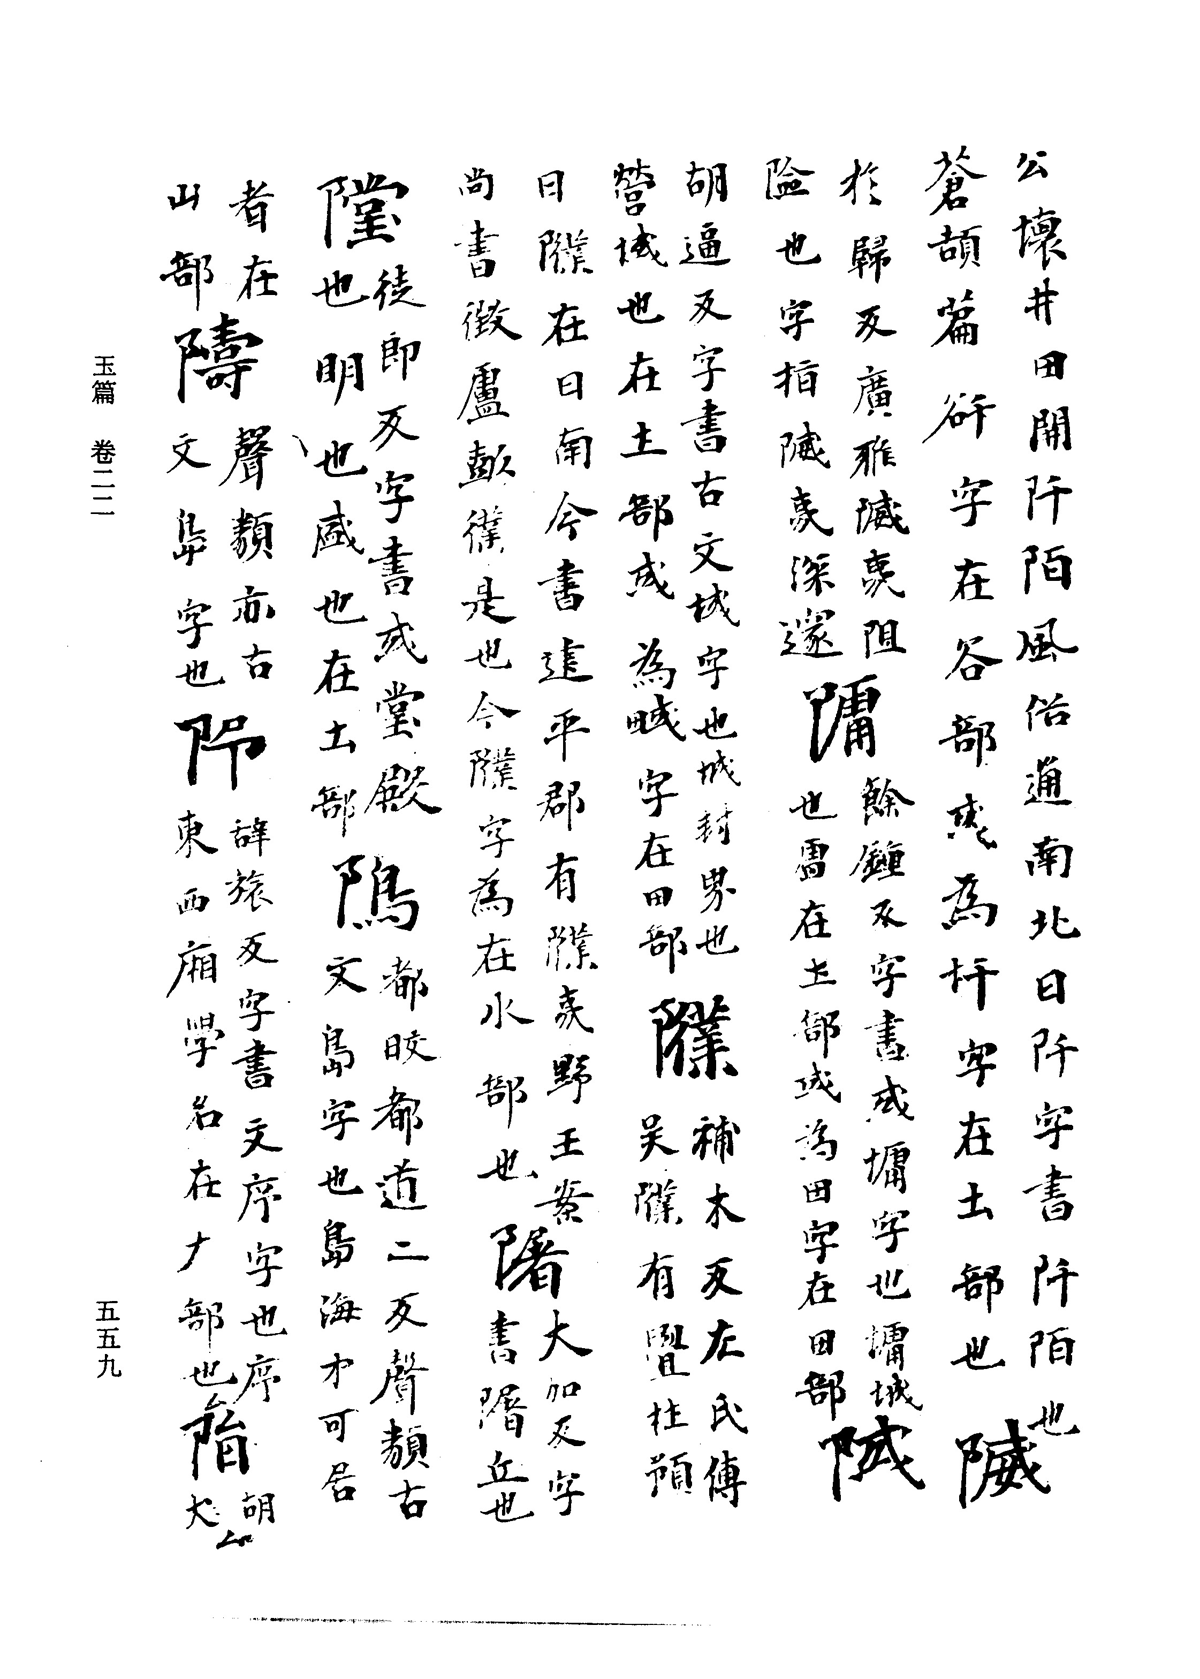 公壞井田開阡陌風俗通南北曰阡字書阡陌也
蒼頡篇 谸字在谷部或為圲字在土部也 隇
於歸反廣雅隇𨺙阻
險也字指隇𨺙深邃
隯 餘鍾反字書或墉字也墉城
也𩫖在土部或為田字在田部
䧕
胡逼反字書古文域字也域封界也
營域也在土部或 為䧕字在田部
隬 補木反左氏傳
吳濮有舋杜預
曰濮在日南今書建平郡有濮夷野王案
尚書微盧彭濮是也今濮字為在水部也
闍 大加反字
書闍丘也
隚 徒即反字書或堂殿
也明也盛也在土部
隝 都晈都道二反聲類古
文島字也島海中可居
者在
山部
隯 聲類亦古
文島字也
阠 辞旅反字書文序字也序
東西廂學名在广部也
䧟 胡
犬
玉篇 卷二二
五五九